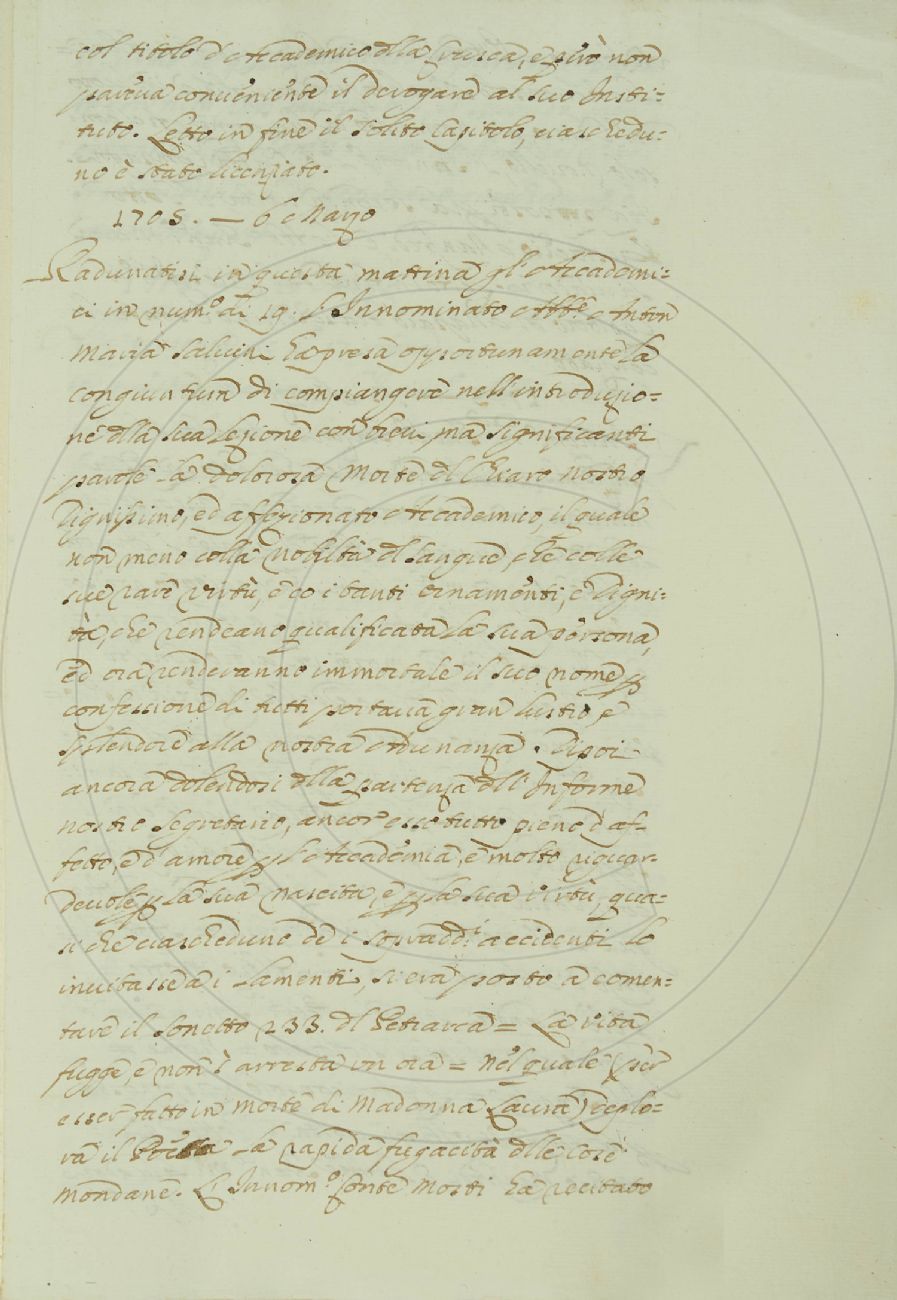 col titolo d'Accademico dlla Crusca, e però non
pareva conveniente il derogare al suo Insti=
tuto. Letto in fine il solito Capitolo, ciaschedu=
no è stato licenziato.
1705. — 6 Marzo
Radunatisi in questa mattina gl'Accademi=
ci in num.º di 19. l'Innominato Abb.e Anton
Maria Salvini ha presa opportunamente la
congiuntura di compiangere nell'introduzio=
ne dlla sua lezione con brevi, ma significanti
parole la dolorosa morte dl Chiaro nostro
dignissimo, ed affezionato Accademico, il quale
non meno colla nobiltà dl sangue, che colle
sue rare virtù, e co i tanti ornamenti, e digni=
tà, che rendeano qualificata la sua persona,
ed ora renderanno immortale il suo nome p
confessione di tutti portava gran lustro, e
splendore alla nostra Adunanza. Dipoi
ancora dolendosi dlla partenza dll'Informe
nostro Segretario, ancor esso tutto pieno d'af=
fetto, e d'amore p l'Accademia, e molto ragguar=
devole p la sua nascita, e p la sua virtù, qua=
si che ciascheduno de i sopradd.i accidenti lo
invitasse a i lamenti, si era posto a comen=
tare il Sonetto 233. dl Petrarca = La vita
fugge, e non s'arresta un ora = nel quale (per
esser fatto in morte di Madonna Laura) deplo=
ra il Poeta la rapida fugacità dlle cose
mondane. L'Innom.º Conte Morti ha recitato